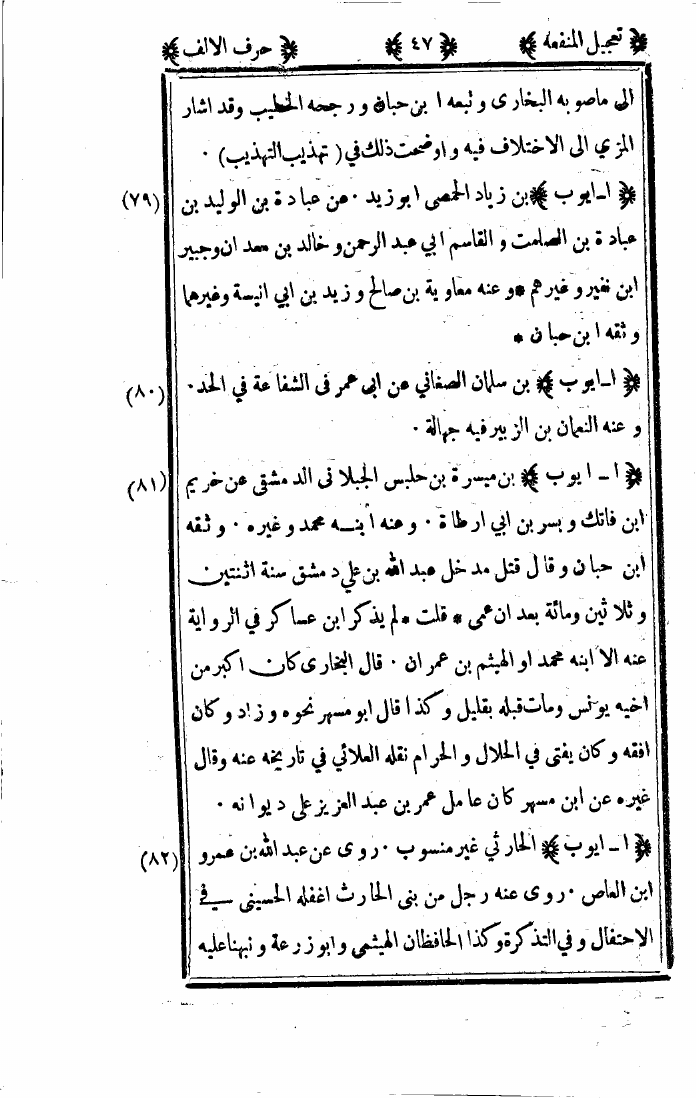 تعجيل المنفعة
﴿٤٧﴾
﴿حرف الالف﴾
الى ماصوبه البخارى و تبعه ا بن حبان و رجحه الخطيب وقد اشار
المزي الى الاختلاف فيه و اوضحت ذلك في ( تهذيب التهذيب ) ٠
(٧٩) ﴿ ا ـ ايوب ﴾ بن زياد الحمصى ابو زيد ٠ عن عبادة بن الوليد بن
عبادة بن الصامت و القاسم ابي عبد الرحمن و خالد بن معدان وجبير
ابن نفير و غيرهم * و عنه معاوية بن صالح و زيد بن ابي انيسة وغيرهما
و ثقه ا بن حبان *
(٨٠) ﴿ ا ـ ايوب ﴾ بن سلمان الصغاني عن ابى عمر فى الشفاعة في الحد ٠
و عنه النعمان بن الزبير فيه جهالة ٠
(٨١) ﴿ ا ـ ايوب ﴾ بن ميسرة بن حلبس الجبلانى الدمشقى عن خريم
ابن فاتك و بسر بن ابي ارطاة ٠ و عنه ابنه محمد و غيره ٠ و ثقه
ابن حبان و قال قتل مدخل عبد الله بن علي دمشق سنة اثنتين
و ثلاثين ومائة بعد ان عمى * قلت * لم يذكر ابن عساكر في الرواية
عنه الا ابنه محمد او الهيثم بن عمران ٠ قال البخارى كان اكبر من
اخيه يونس ومات قبله بقليل و كذا قال ابو مسهر نحوه و زاد و كان
افقه و كان يفتى في الحلال و الحرام نقله العلائي في تاريخه عنه وقال
غيره عن ابن مسهر كان عامل عمر بن عبد العزيز على ديوانه ٠
(٨٢) ﴿ ا ـ ايوب ﴾ الحارثي غير منسوب ٠ روى عن عبد الله بن عمرو
ابن العاص ٠ روى عنه رجل من بنى الحارث اغفله الحسينى في
الاحتفال و في التذكرة و كذا الحافظان الهيثمى و ابو زرعة و نبهنا عليه